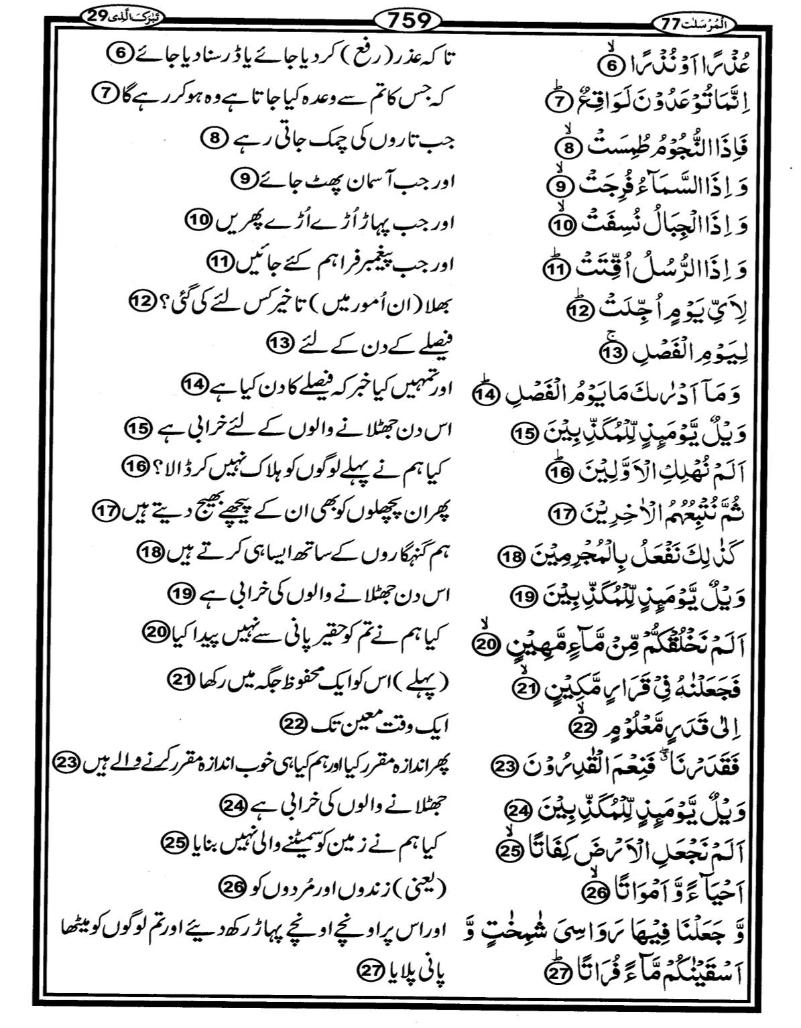 المرسلت 77 759 تبٰرک الذی 29
عُذْرًا اَوْ نُذْرًا ۙ 6 تاکہ عذر (رفع) کر دیا جائے یا ڈر سنا دیا جائے 6
اِنَّمَا تُوْعَدُوْنَ لَوَاقِعٌ ؕ 7 کہ جس کا تم سے وعدہ کیا جاتا ہے وہ ہو کر رہے گا 7
فَاِذَا النُّجُوْمُ طُمِسَتْ ۙ 8 جب تاروں کی چمک جاتی رہے 8
وَ اِذَا السَّمَآءُ فُرِجَتْ ۙ 9 اور جب آسمان پھٹ جائے 9
وَ اِذَا الْجِبَالُ نُسِفَتْ ۙ 10 اور جب پہاڑ اُڑے اُڑے پھریں 10
وَ اِذَا الرُّسُلُ اُقِّتَتْ ؕ 11 اور جب پیغمبر فراہم کئے جائیں 11
لِاَيِّ يَوْمٍ اُجِّلَتْ ؕ 12 بھلا (ان اُمور میں) تاخیر کس لئے کی گئی؟ 12
لِيَوْمِ الْفَصْلِ ۚ 13 فیصلے کے دن کے لئے 13
وَ مَاۤ اَدْرٰىكَ مَا يَوْمُ الْفَصْلِ ؕ 14 اور تمہیں کیا خبر کہ فیصلے کا دن کیا ہے 14
وَيْلٌ يَّوْمَئِذٍ لِّلْمُكَذِّبِيْنَ 15 اس دن جھٹلانے والوں کے لئے خرابی ہے 15
اَلَمْ نُهْلِكِ الْاَوَّلِيْنَ ؕ 16 کیا ہم نے پہلے لوگوں کو ہلاک نہیں کر ڈالا؟ 16
ثُمَّ نُتْبِعُهُمُ الْاٰخِرِيْنَ 17 پھر ان پچھلوں کو بھی ان کے پیچھے بھیج دیتے ہیں 17
كَذٰلِكَ نَفْعَلُ بِالْمُجْرِمِيْنَ 18 ہم گنہگاروں کے ساتھ ایسا ہی کرتے ہیں 18
وَيْلٌ يَّوْمَئِذٍ لِّلْمُكَذِّبِيْنَ 19 اس دن جھٹلانے والوں کی خرابی ہے 19
اَلَمْ نَخْلُقْكُّمْ مِّنْ مَّآءٍ مَّهِيْنٍ ۙ 20 کیا ہم نے تم کو حقیر پانی سے نہیں پیدا کیا 20
فَجَعَلْنٰهُ فِيْ قَرَارٍ مَّكِيْنٍ ۙ 21 (پہلے) اس کو ایک محفوظ جگہ میں رکھا 21
اِلٰى قَدَرٍ مَّعْلُوْمٍ ۙ 22 ایک وقت معین تک 22
فَقَدَرْنَا ۖ فَنِعْمَ الْقٰدِرُوْنَ 23 پھر اندازہ مقرر کیا اور ہم کیا ہی خوب اندازہ مقرر کرنے والے ہیں 23
وَيْلٌ يَّوْمَئِذٍ لِّلْمُكَذِّبِيْنَ 24 جھٹلانے والوں کی خرابی ہے 24
اَلَمْ نَجْعَلِ الْاَرْضَ كِفَاتًا ۙ 25 کیا ہم نے زمین کو سمیٹنے والی نہیں بنایا 25
اَحْيَآءً وَّ اَمْوَاتًا ۙ 26 (یعنی) زندوں اور مُردوں کو 26
وَّ جَعَلْنَا فِيْهَا رَوَاسِيَ شٰمِخٰتٍ وَّ اور اس پر اونچے اونچے پہاڑ رکھ دیئے اور تم لوگوں کو میٹھا
اَسْقَيْنٰكُمْ مَّآءً فُرَاتًا ؕ 27 پانی پلایا 27